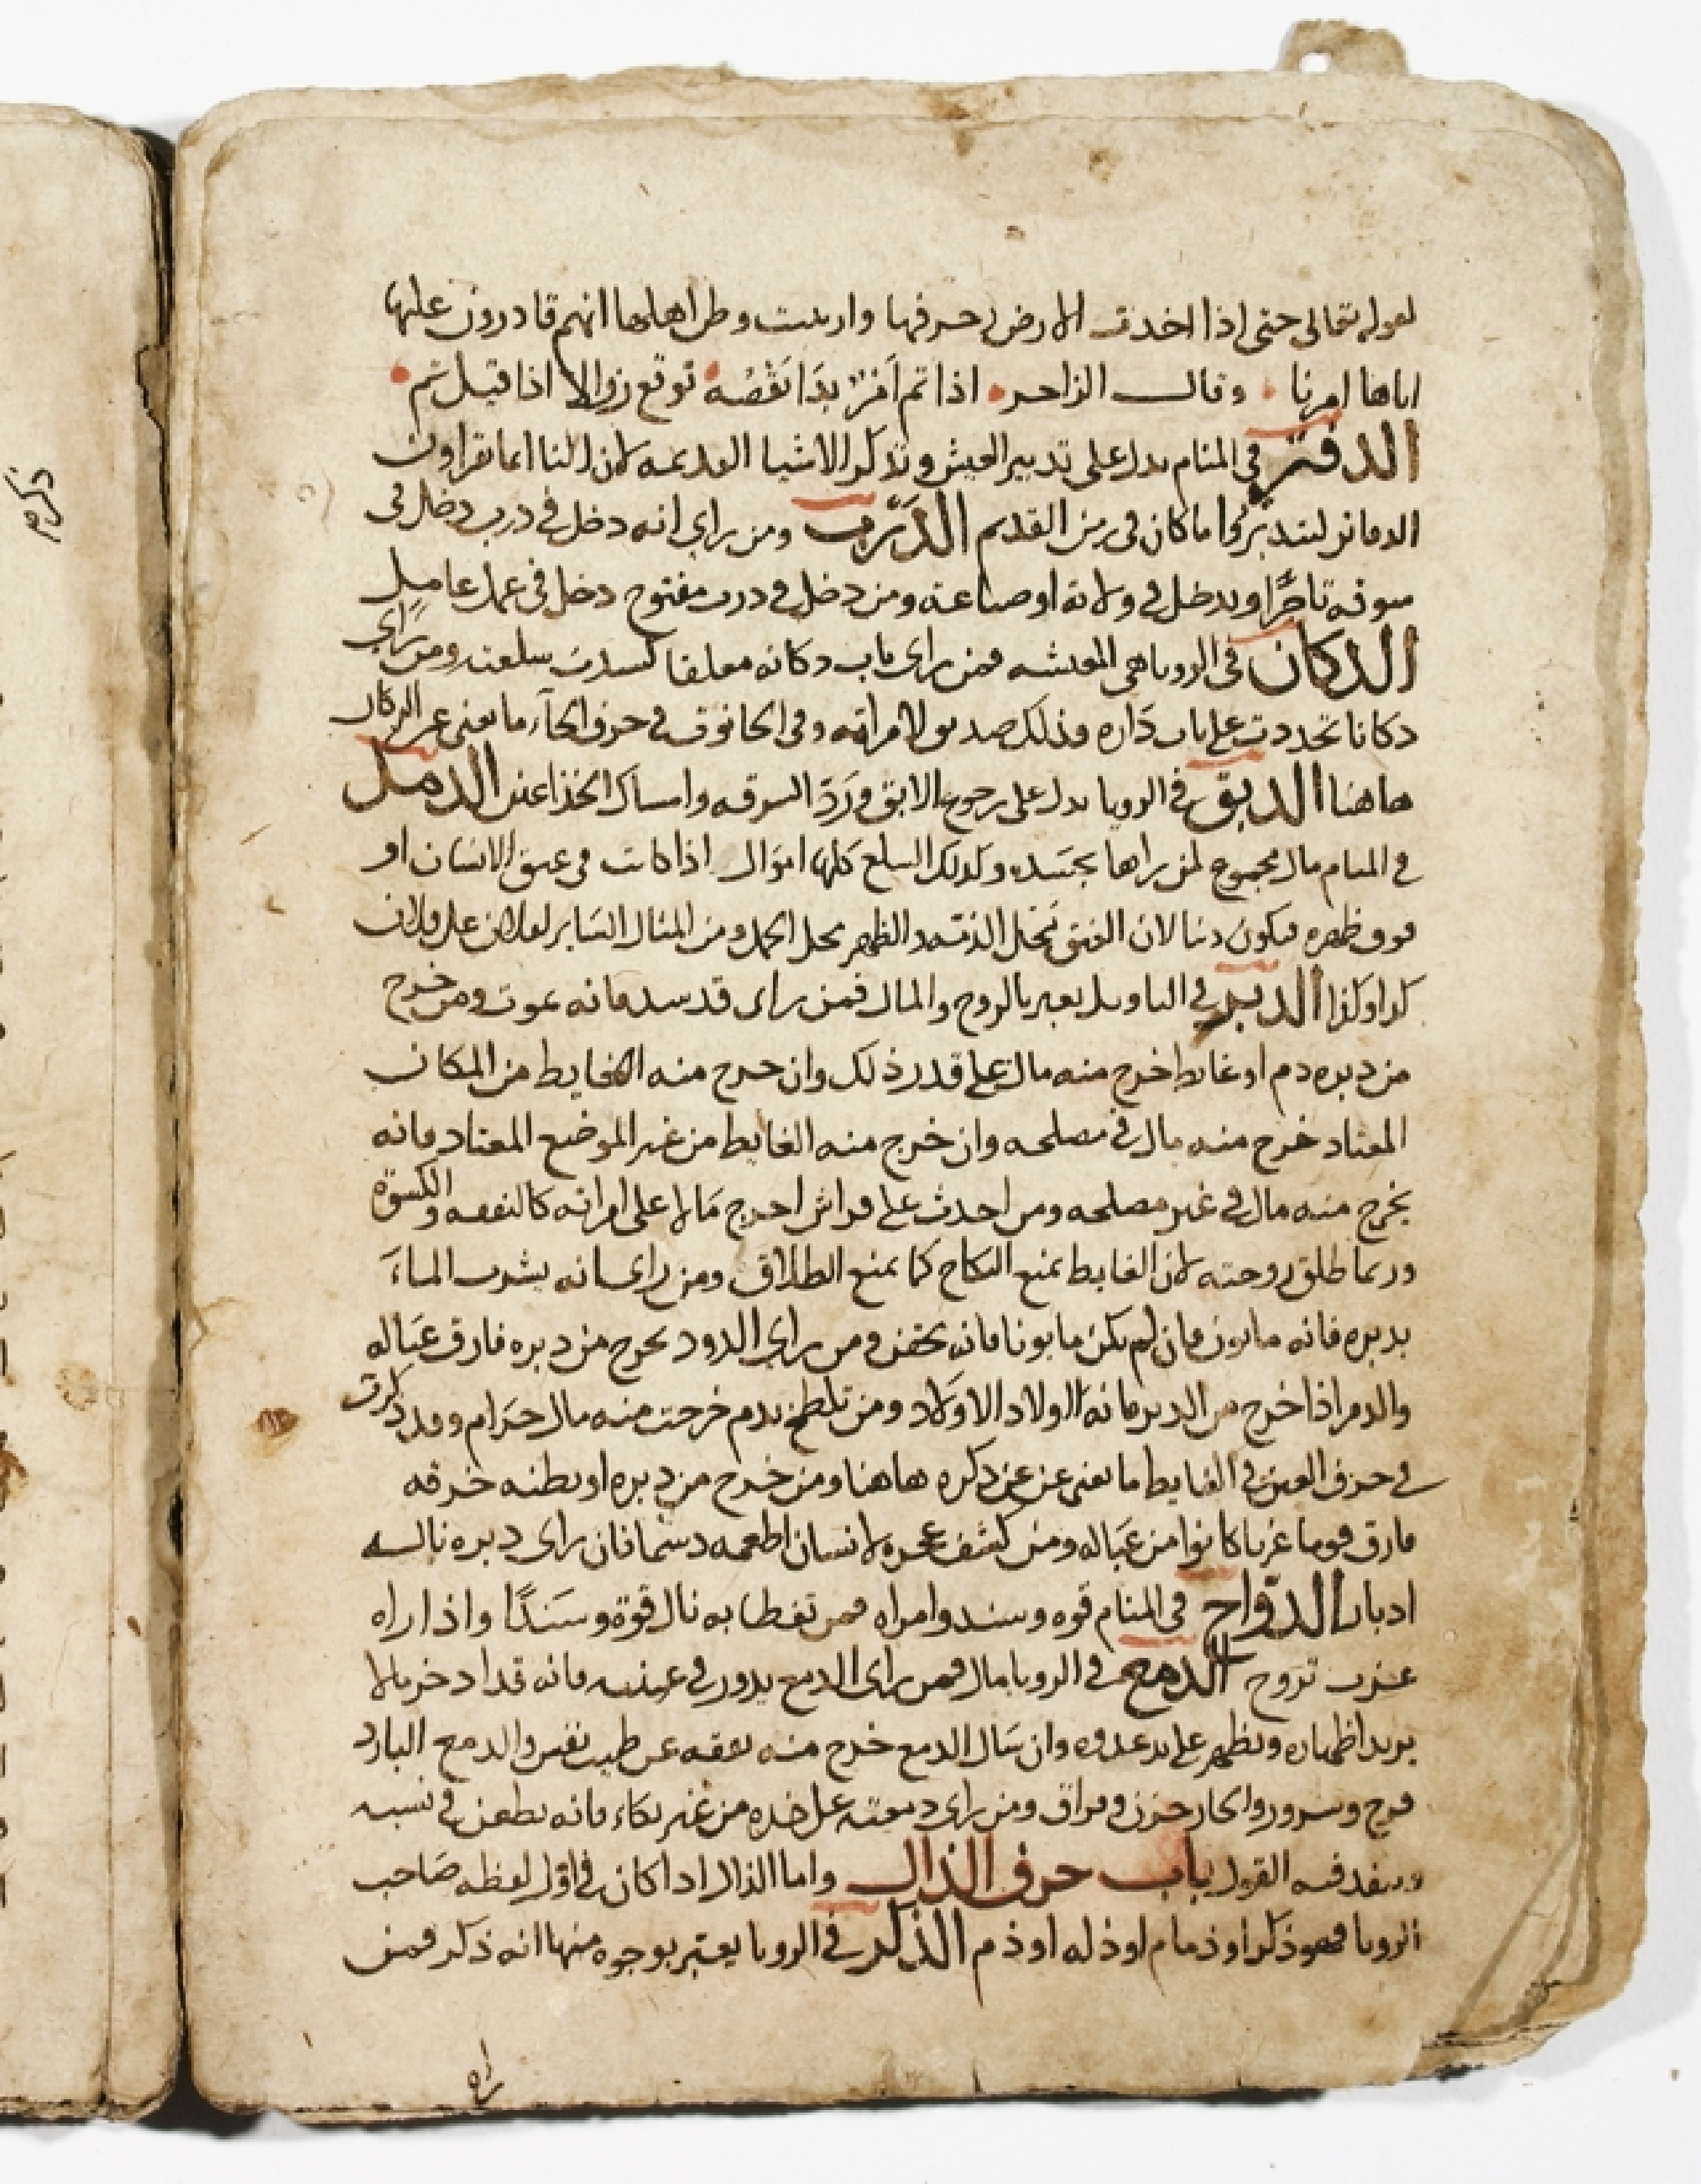 لقوله تعالى حتى اذا اخذت الارض زخرفها وازينت وظن اهلها انهم قادرون عليها
اتاها امرنا وقال الزاجر اذا تم امر بدا نقصه توقع زوالا اذا قيل تم
الدفتر في المنام يدل على تدبير العيش وتذكر الاشيا القديمه لان الناس انما يقراون
الدفاتر لتدبروا ما كان في زمن القديم الدرب ومن راى انه دخل في درب دخل في
سوقه تاجرا او يدخل في ولاية او صناعة ومن دخل في درب مفتوح دخل في عمل عامل
الدكان في الرويا هي المعيشه فمن راى باب دكانه مغلقا كسدت سلعته ومن راى
دكانا تجددت على باب داره فذلك صديق لامراته وفي الحانوت في حرف الحاء ما يغني عن الدكان
هاهنا الدبق في الرويا يدل على رجوع الابق ورد السرقه وامساك الخذاعين الدمل
في المنام مال مجموع لمن يراها بجسده وكذلك السلع كلها اموال اذا كانت في عنق الانسان او
فوق ظهره فيكون دينا لان العنق محل الذمه والظهر محل الحمل ومن المثال الساير لفلان على فلان
كذا وكذا الدبر في التاويل يعبر بالروح والمال فمن راى قد سد فانه يموت ومن خرج
من دبره دم او غايط خرج منه مال على قدر ذلك وان خرج منه الغايط من المكان
المعتاد خرج منه مال في مصلحه وان خرج منه الغايط من غير الموضع المعتاد فانه
يخرج منه مال في غير مصلحه ومن احدث على فراش اخرج مالا على امراته كالنفقه والكسوة
وربما طلق زوجته لان الغايط يمنع النكاح كما يمنع الطلاق ومن راى انه يشرب الماء
بدبره فانه مابون فان لم يكن مابونا فانه يحتقن ومن راى الدود يخرج من دبره فارق عياله
والدم اذا خرج من الدبر فانه الولاد الاولاد ومن تلطخ بدم خرجت منه مال حرام وقد ذكرت
في حرف الغين في الغايط ما يغني عن عن ذكره هاهنا ومن خرج من دبره او بطنه خرقه
فارق قوما غربا كانوا من عياله ومن كشف عجزه لانسان اطعمه دسما فان راى دبره ناله
ادبار الدواج في المنام قوه وسند وامراه فمن تغطا به نال قوة وسندا واذا راه
عزب تزوج الدمع في الرويا مال فمن راى الدمع يدور في عينيه فانه قد ادخر مالا
يريد اظهاره ويظهر على يد عدوه وان سال الدمع خرج منه نفقه عن طيب نفس والدمع البارد
فرح وسرور والحار حزن وفراق ومن راى دمعته على خده من غير بكاء فانه يطعن في نسبه
وينفد فيه القول باب حرف الذال واما الذال اذا كان في اول لفظه صاحب
الرويا فهو ذكر او ذمام او ذله او ذم الذكر في الرويا يعتبر بوجوه منها انه ذكر فمن
راه